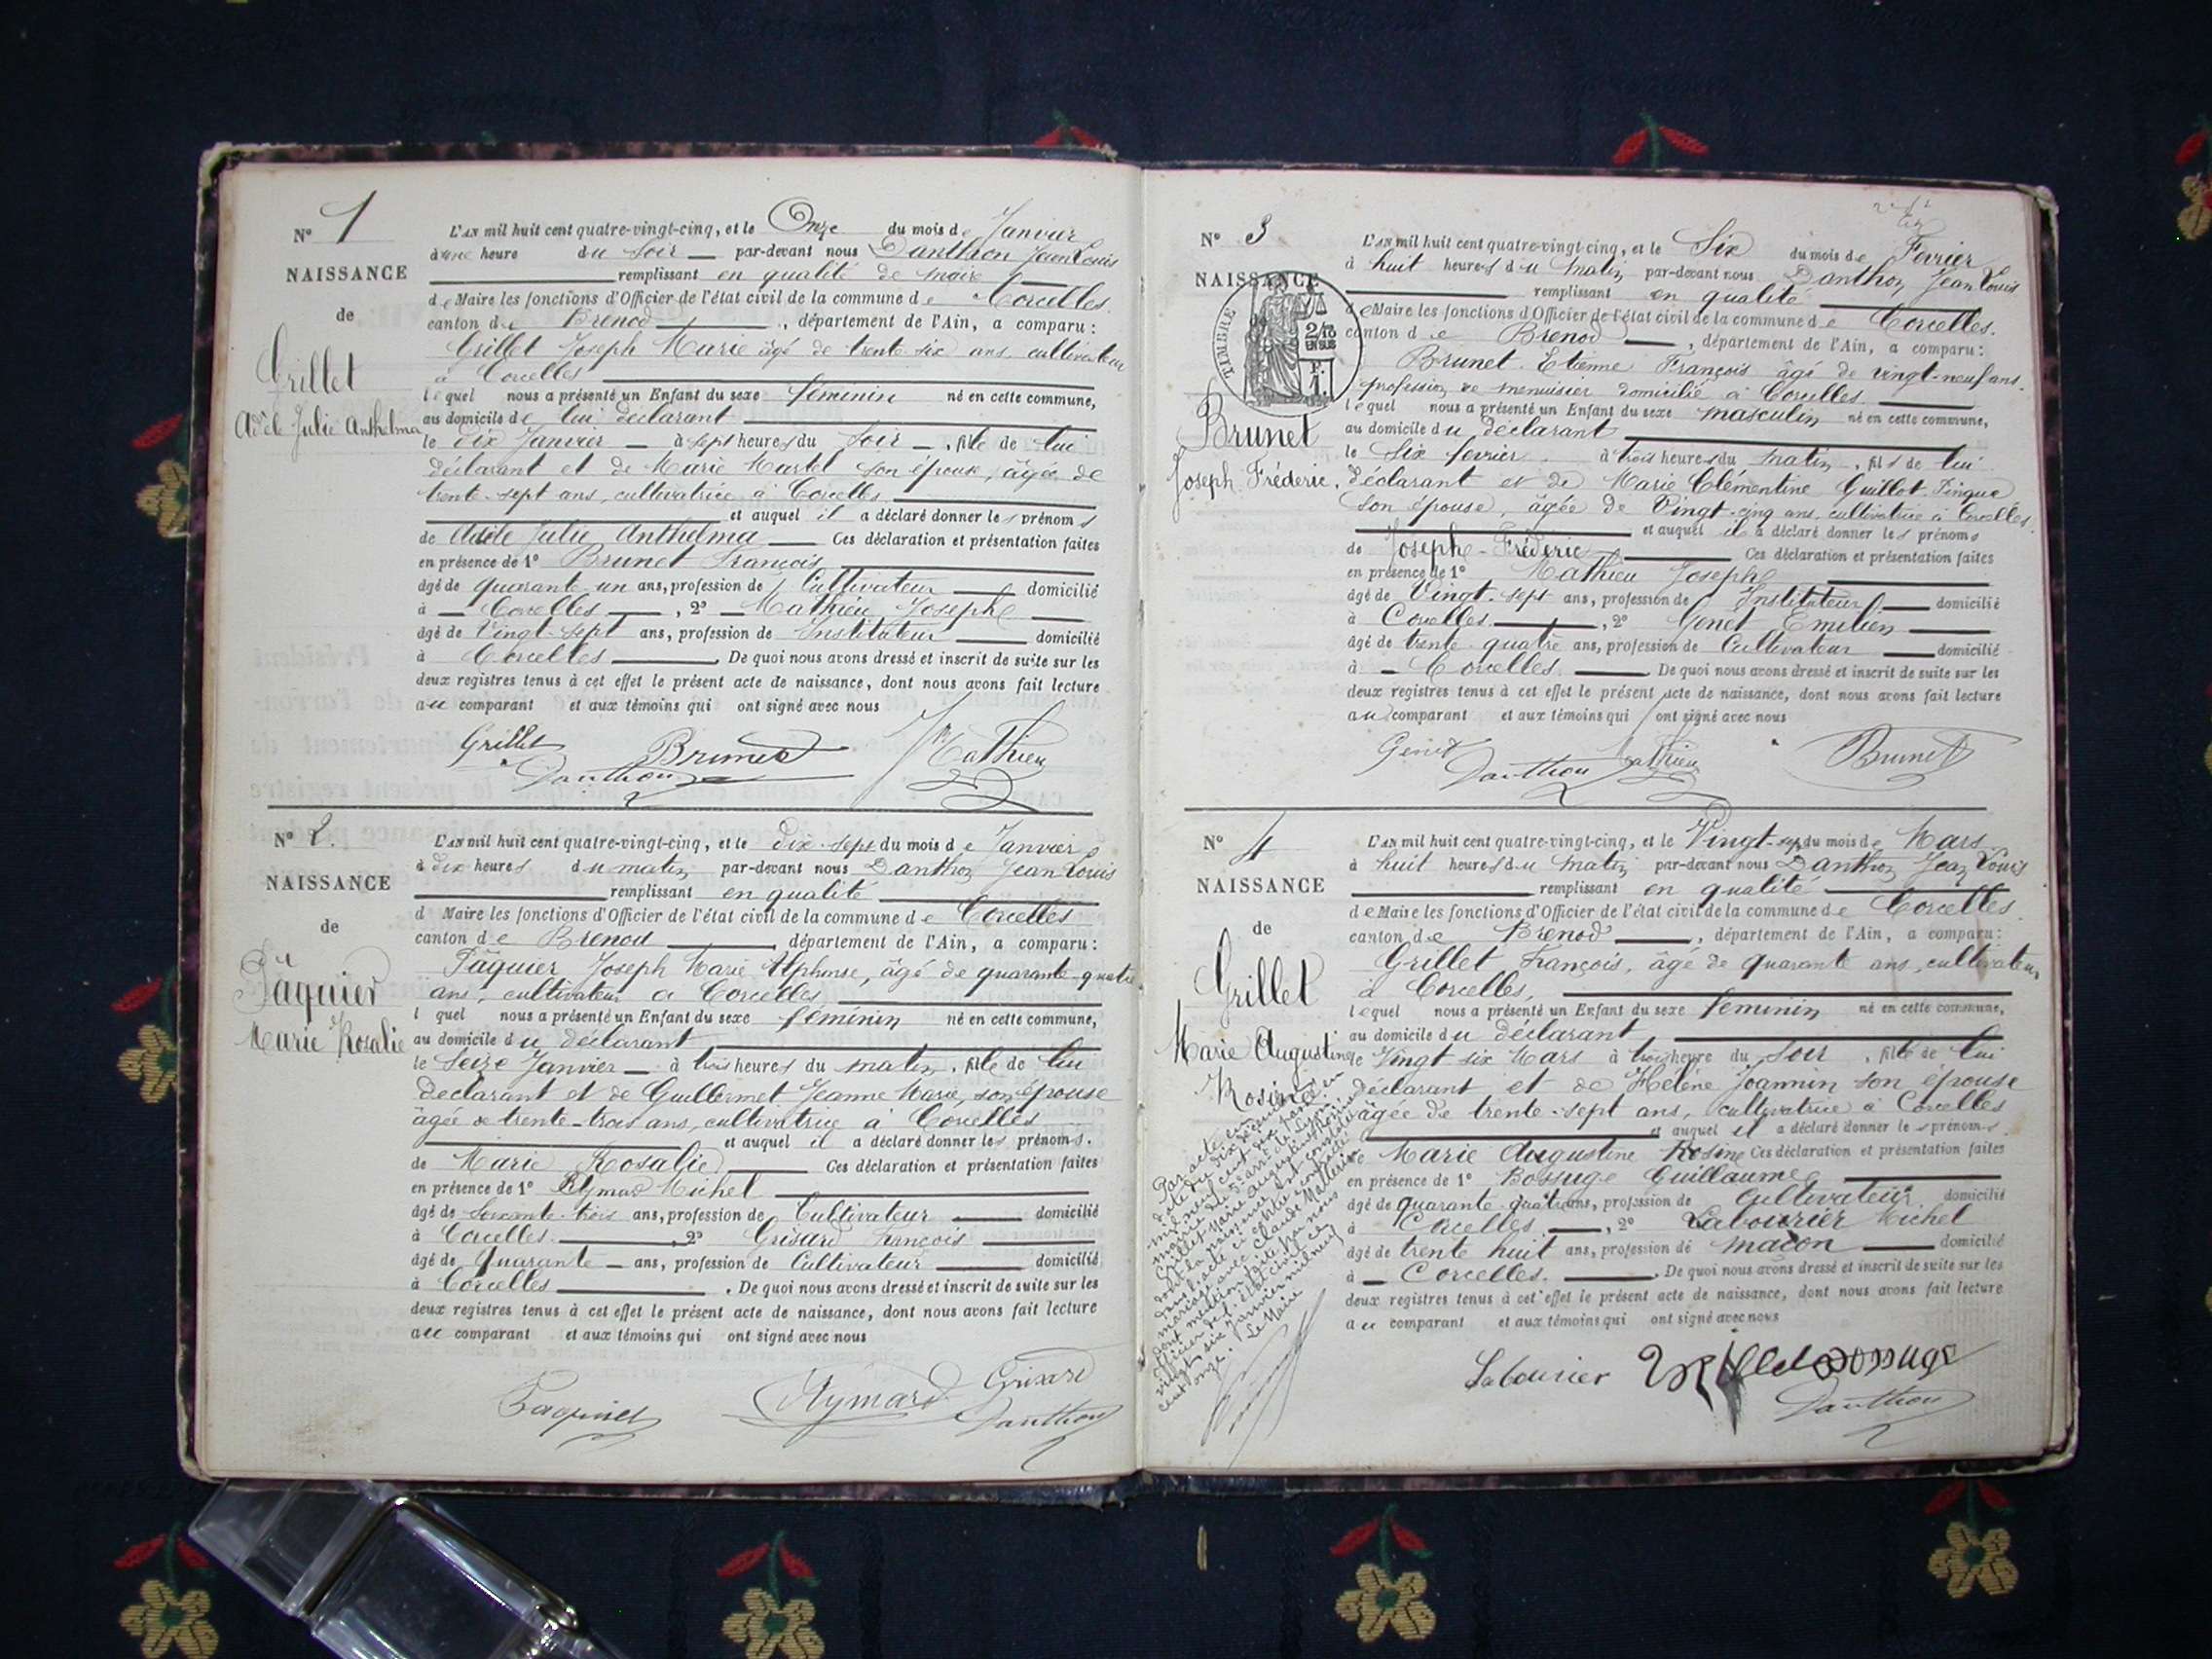 N° 1
NAISSANCE
de
Grillet
Adèle Julie Anthelma
L'AN mil huit cent quatre-vingt-cinq, et le Onze du mois de Janvier
à une heure du soir par-devant nous Danthon Jean Louis
remplissant en qualité de maire
de Maire les fonctions d'Officier de l'état civil de la commune de Corcelles
canton de Brenod, département de l'Ain, a comparu :
Grillet Joseph Marie âgé de trente six ans, cultivateur
à Corcelles
lequel nous a présenté un Enfant du sexe féminin né en cette commune,
au domicile de lui déclarant
le dix Janvier à sept heures du soir, fille de lui
déclarant et de Marie Martel son épouse, âgée de
trente-sept ans, cultivatrice à Corcelles
et auquel il a déclaré donner les prénoms
de Adèle Julie Anthelma Ces déclaration et présentation faites
en présence de 1° Brunet François
âgé de quarante un ans, profession de Cultivateur domicilié
à Corcelles, 2° Mathieu Josephe
âgé de Vingt-sept ans, profession de Instituteur domicilié
à Corcelles. De quoi nous avons dressé et inscrit de suite sur les
deux registres tenus à cet effet le présent acte de naissance, dont nous avons fait lecture
au comparant et aux témoins qui ont signé avec nous
Grillet Brunet Mathieu
Danthon
N° 2.
NAISSANCE
de
Pâquier
Marie Rosalie
L'AN mil huit cent quatre-vingt-cinq, et le dix-sept du mois de Janvier
à dix heures du matin par-devant nous Danthon Jean Louis
remplissant en qualité
d Maire les fonctions d'Officier de l'état civil de la commune de Corcelles
canton de Brenod, département de l'Ain, a comparu :
Pâquier Joseph Marie Alphonse, âgé de quarante-quatre
ans, cultivateur à Corcelles
l quel nous a présenté un Enfant du sexe féminin né en cette commune,
au domicile du déclarant
le Seize Janvier à trois heures du matin, fille de lui
déclarant et de Guillermet Jeanne Marie, son épouse
âgée de trente-trois ans, cultivatrice à Corcelles
et auquel il a déclaré donner les prénoms.
de Marie Rosalie Ces déclaration et présentation faites
en présence de 1° Aymard Michel
âgé de soixante-trois ans, profession de Cultivateur domicilié
à Corcelles, 2° Grisard François
âgé de Quarante ans, profession de Cultivateur domicilié
à Corcelles. De quoi nous avons dressé et inscrit de suite sur les
deux registres tenus à cet effet le présent acte de naissance, dont nous avons fait lecture
au comparant et aux témoins qui ont signé avec nous
Paquier Aymard Grisard
Danthon
N° 3
NAISSANCE
TIMBRE
2/10
EN SUS
F.
1.
Brunet
Joseph Fréderic.
L'AN mil huit cent quatre-vingt-cinq, et le Six du mois de Février
à huit heures du matin par-devant nous Danthon Jean Louis
remplissant en qualité
de Maire les fonctions d'Officier de l'état civil de la commune de Corcelles.
canton de Brenod, département de l'Ain, a comparu :
Brunet Etienne François âgé de vingt-neuf ans.
profession de menuisier domicilié à Corcelles.
lequel nous a présenté un Enfant du sexe masculin né en cette commune,
au domicile du déclarant
le Six février à trois heures du matin, fils de lui
déclarant et de Marie Clémentine Guillot Pingue
son épouse, âgée de Vingt-cinq ans, cultivatrice à Corcelles
et auquel il a déclaré donner les prénoms
de Josephe-Fréderic Ces déclaration et présentation faites
en présence de 1° Mathieu Josephe
âgé de Vingt-sept ans, profession de Instituteur domicilié
à Corcelles, 2° Genet Emilien
âgé de trente quatre ans, profession de Cultivateur domicilié
à Corcelles. De quoi nous avons dressé et inscrit de suite sur les
deux registres tenus à cet effet le présent acte de naissance, dont nous avons fait lecture
au comparant et aux témoins qui ont signé avec nous
Genet Danthon Mathieu Brunet
N° 4
NAISSANCE
de
Grillet
Marie Augustine
Rosine
L'AN mil huit cent quatre-vingt-cinq, et le Vingt-sept du mois de Mars
à huit heures du matin par-devant nous Danthon Jean Louis
remplissant en qualité
de Maire les fonctions d'Officier de l'état civil de la commune de Corcelles
canton de Brenod, département de l'Ain, a comparu :
Grillet François, âgé de quarante ans, cultivateur
à Corcelles,
lequel nous a présenté un Enfant du sexe féminin né en cette commune,
au domicile du déclarant
le Vingt six Mars à trois heure du soir, fille de lui
déclarant et de Hélène Joannin son épouse
âgée de trente-sept ans, cultivatrice à Corcelles
et auquel il a déclaré donner les prénoms.
de Marie Augustine Rosine Ces déclaration et présentation faites
en présence de 1° Bossuge Guillaume
âgé de quarante quatre ans, profession de Cultivateur domicilié
à Corcelles, 2° Labourier Michel
âgé de trente huit ans, profession de maçon domicilié
à Corcelles. De quoi nous avons dressé et inscrit de suite sur les
deux registres tenus à cet effet le présent acte de naissance, dont nous avons fait lecture
au comparant et aux témoins qui ont signé avec nous
Labourier Grillet Bossuge
Danthon
Par acte
date du dix décembre
mil neuf cent dix
mairie du arr. de Lyon
Grillet Marie Augustine
dont la naissance est constatée
dans l'acte ci-contre a contracté
mariage avec Claude
dont mention faite par nous
officier de l'état civil ce
vingt six Janvier mil neuf
cent onze. Le Maire